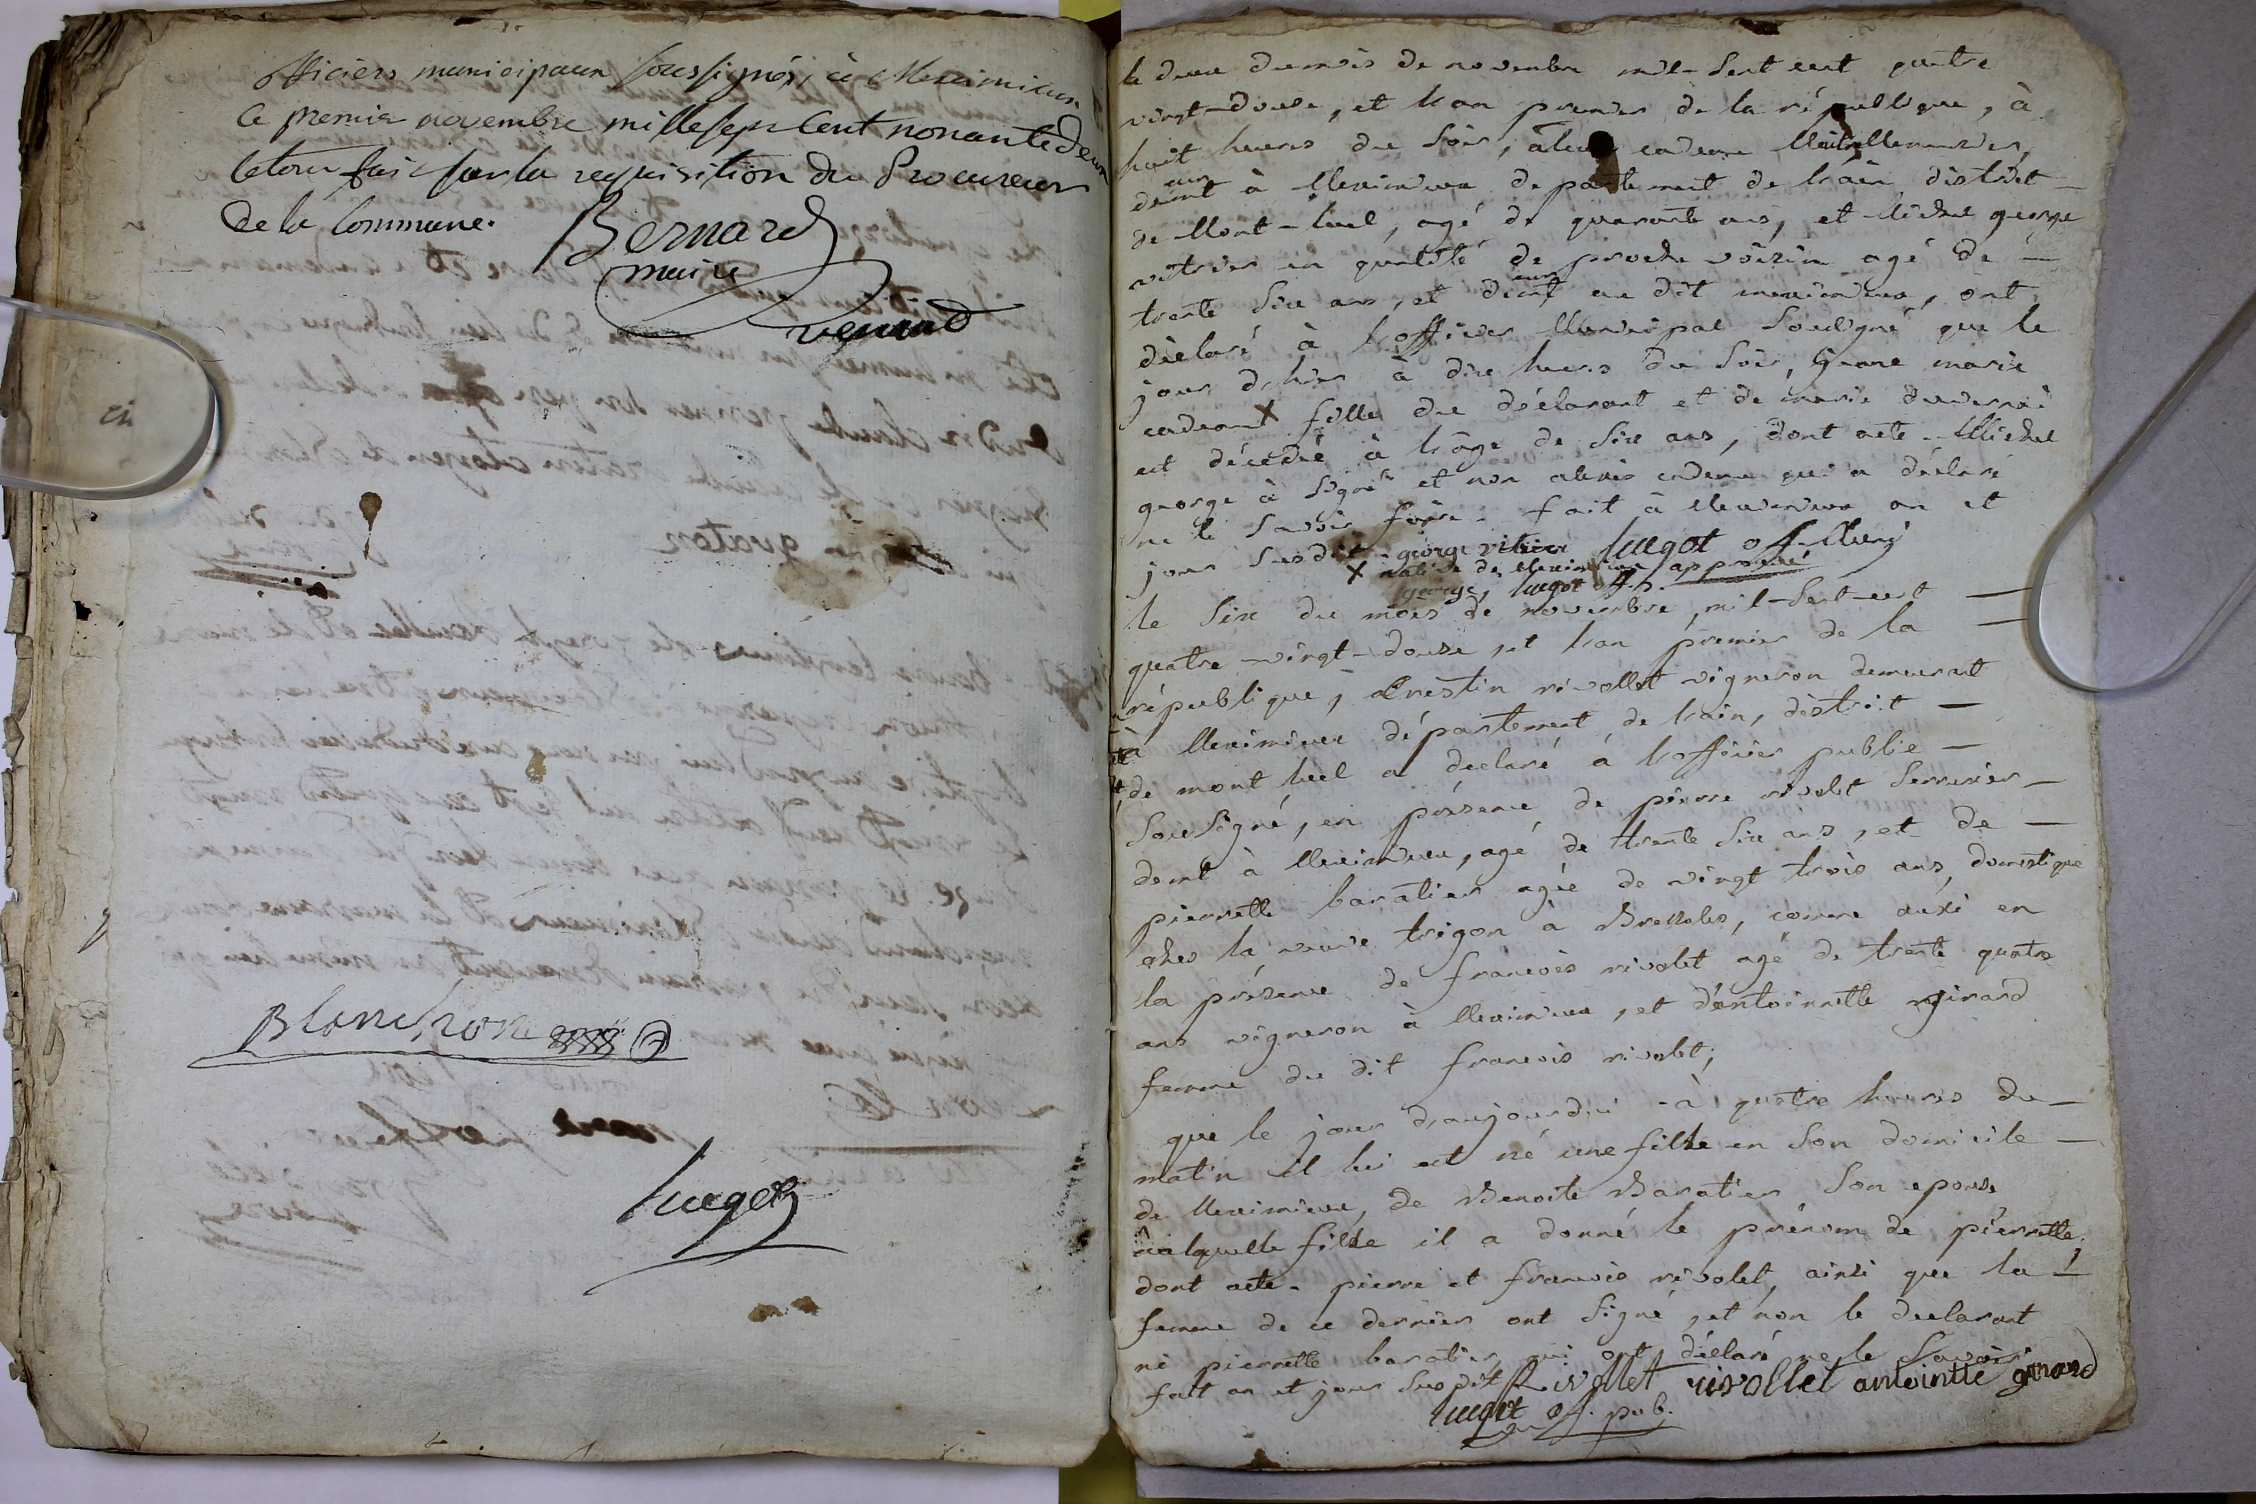 officiers municipaux soussignés, à Meximieux
Ce premier novembre mille sept Cent nonante deux
letout fait sur la requisition du Procureur
de la Commune.
Bernard
maire
venand
Blanchon
Luget
le deux du mois de novembre mil-sept cent quatre
vingt-douse, et l'an premier de la république, à
huit heures du soir, cadeux
demeurant à Meximieux departement de l'ain, district
de Mont-luel, agé de quarante ans, et Michel george
vitrier en qualité de proche voisin agé de
trente six ans, et demeurant au dit meximieux, ont
déclaré à l'officier Municipal Sousigné que le
jour d'hier à dix heures du soir, jeane marie
X fille du déclarant et de marie
est décédée à l'âge de six ans, dont acte. Michel
george à signé et non alexis qui a déclaré
ne le savoir faire. fait à Meximieux an et
jour susdit. george vitrier Luget of. Muni
X native de Meximieux approuvé
george, Luget of.
le six du mois de novembre, mil-sept-cent
quatre-vingt-douse, et l'an premier de la
république, Crestin rivollet vigneron demeurant
à Meximieux département de l'ain, district
de mont luel a declaré à l'officier public
sousigné, en présence de pierre rivolet serrurier
demt à Meximieux, agé de trente six ans, et de
pierrette baratier agée de vingt trois ans, domestique
ches la veuve trigon à Bressoles, comme aussi en
la présence de francois rivolet agé de trente quatre
ans vigneron à Meximieux, et d'entoinette girard
femme du dit francois rivolet,
que le jour d'aujourdui à quatre heures du
matin il lui est né une fille en son domicile
de Meximieux, de Benoite Baratier son epouse
à laquelle fille il a donné le prénom de pierrette,
dont acte. pierre et francois rivolet, ainsi que la
femme de ce dernier ont signé, et non le declarant
ni pierrette baratier qui ont déclaré ne le savoir
fait an et jour susdit Rivollet rivollet antointte girard
Luget of. pub.